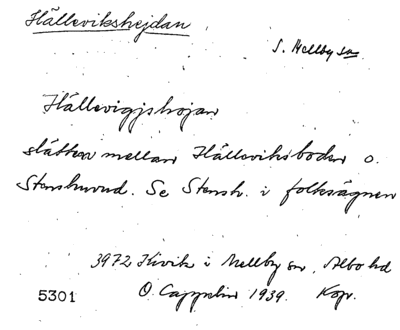 Hällevikshejdan
S. Mellby sn
Hällevigjshojan
slätten mellan Hälleviksboden o.
Stenshuvud. Se Stensh. i folksägnen
3972 Kivik i Mellby sn, Albo hd
5301 O. Cappelin 1939. Kop.